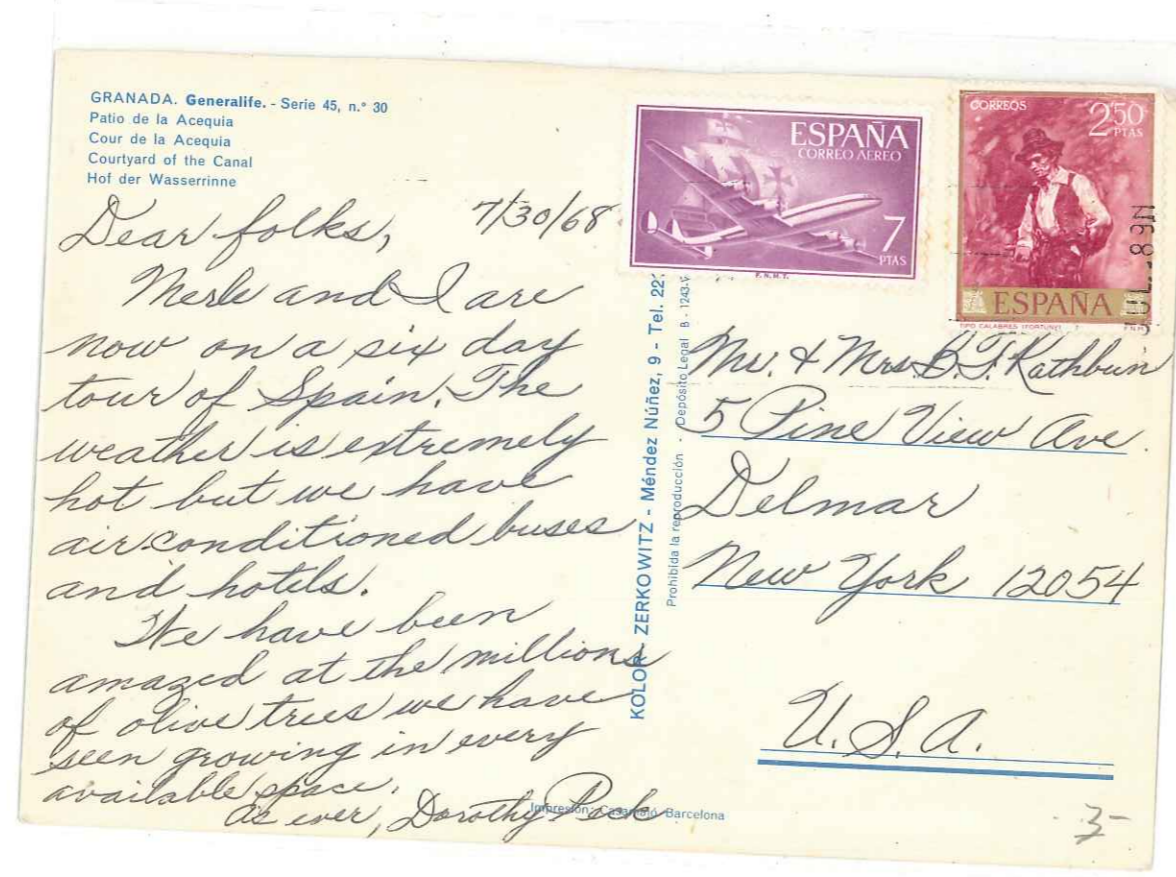 GRANADA. Generalife. - Serie 45, n.° 30
Patio de la Acequia
Cour de la Acequia
Courtyard of the Canal
Hof der Wasserrinne
7/30/68
Dear folks,
Merle and I are
now on a six day
tour of Spain. The
weather is extremely
hot but we have
air-conditioned buses
and hotels.
We have been
amazed at the millions
of olive trees we have
seen growing in every
available space.
As ever, Dorothy Peck
KOLOR - ZERKOWITZ - Méndez Núñez, 9 - Tel. 22
Prohibida la reproducción - Depósito Legal B. 1243-
Impresión: Barcelona
ESPAÑA
CORREO AEREO
7
PTAS
F.N.M.T.
CORREOS
250
PTAS
ESPAÑA
TIPO CALABRES (FORTUNY)
Mr. & Mrs. B.T. Rathbun
5 Pine View Ave
Delmar
New York 12054
U.S.A.
3-